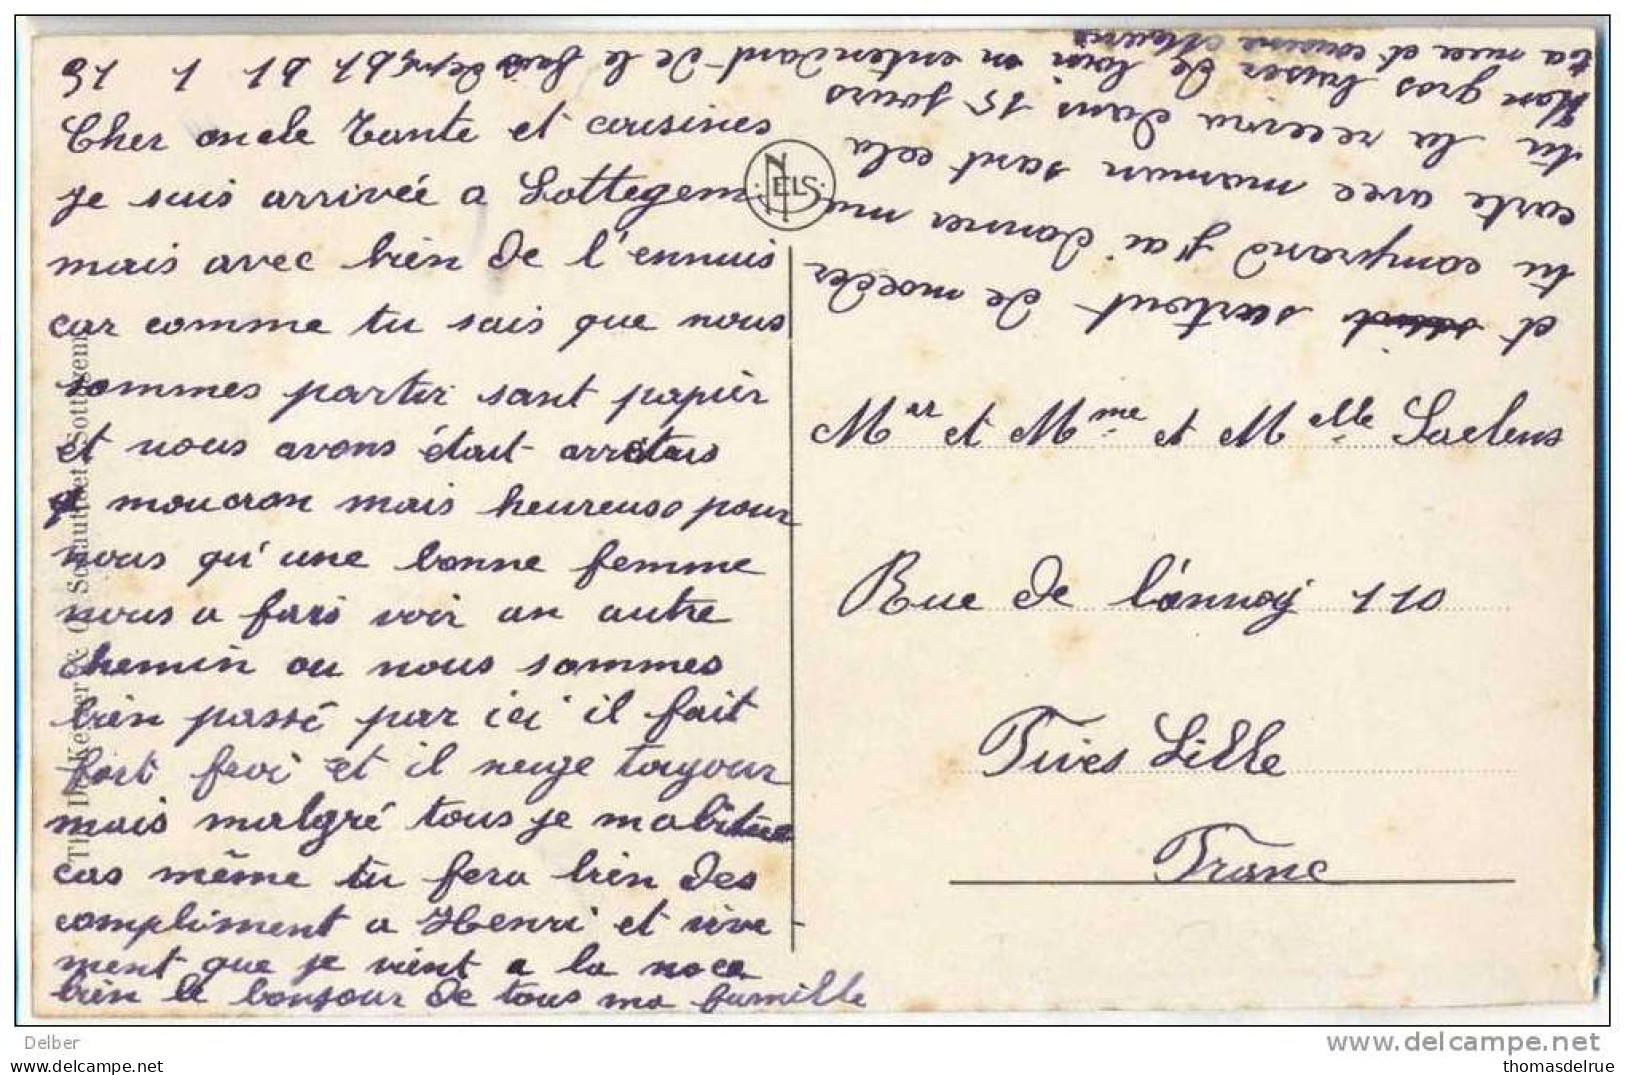 Cher oncle Tante et cousines
je suis arrivée a Sottegem
mais avec bien de l'ennuis
car comme tu sais que nous
sommes partir sant papier
et nous avons était
moucron mais heureuse pour
nous qu'une bonne femme
nous a fais voir un autre
chemin ou nous sommes
bien passé par ici il fait
fort froi et il neige toujour
mais malgré tous je mabitue
cas même tu fera bien des
compliment a Henri et vive-
ment que je vient a la noce
bien le bonjour de tous ma famille
et surtout de
tu comprand j'ai donner ma
carte avec maman sant cela
tu la recevra dans 15 jours
Mon gros baiser de loin en entendant de le faire
ta niece et cousine
NELS
Mr et Mme et Melle Saelens
Rue de l'annoy 110
Fives Lille
Franc
Sottegem
Delber
www.delcampe.net
thomasdelrue